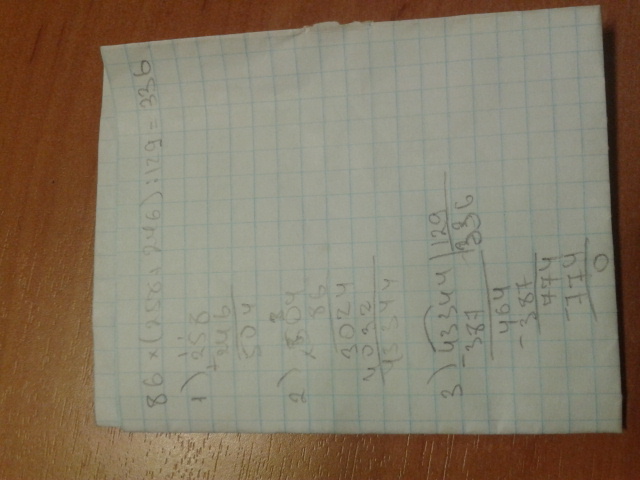 86 × (258 + 246) : 129 = 336
1) 258
+ 246
504
2) 504
× 86
3024
4032
43344
3) 43344 | 129
- 387 336
464
- 387
774
- 774
0